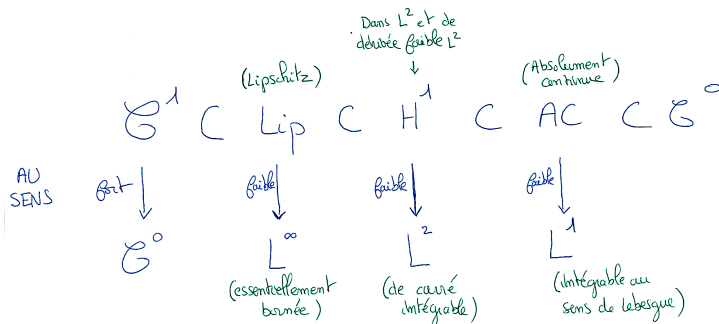 Dans L² et de
dérivée faible L²
(Lipschitz)
(Absolument
continue)
C¹ ⊂ Lip ⊂ H¹ ⊂ AC ⊂ C⁰
AU
SENS
fort
faible
faible
faible
C⁰
L∞
L²
L¹
(essentiellement
bornée)
(de carré
intégrable)
(intégrable au
sens de Lebesgue)